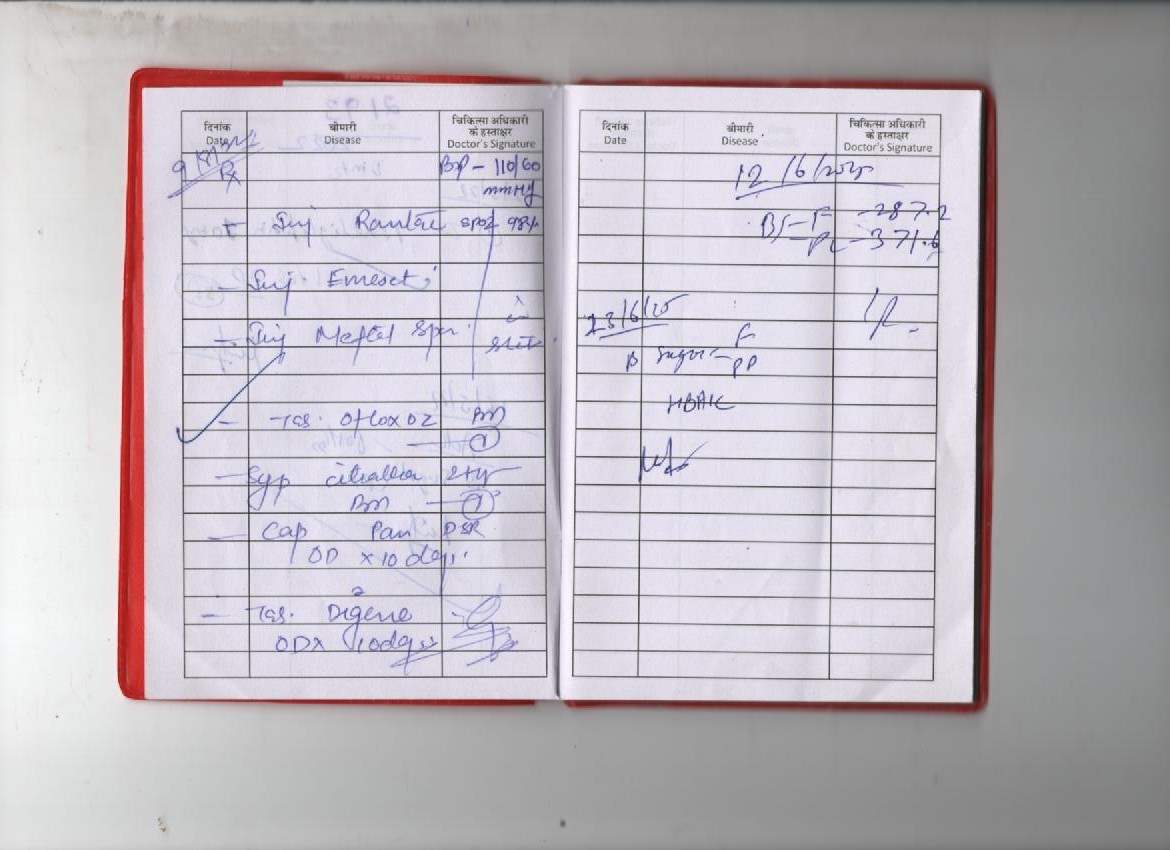 दिनांक
Date
बीमारी
Disease
चिकित्सा अधिकारी
के हस्ताक्षर
Doctor's Signature
Rx
BP - 110/60
mmHg
Inj Rantac SPO2 98%
- Inj. Emeset
Inj Meftal Spa
- Tab. Oflox OZ BD
- Syp
BD
- Cap Pan DSR
OD x 10 days
- Tab. Digene
OD x 10 days
दिनांक
Date
बीमारी
Disease
चिकित्सा अधिकारी
के हस्ताक्षर
Doctor's Signature
12/6/2025
BS - F - 287.2
- PP - 371.6
23/6/25
B Sugar - F
PP
HBA1C